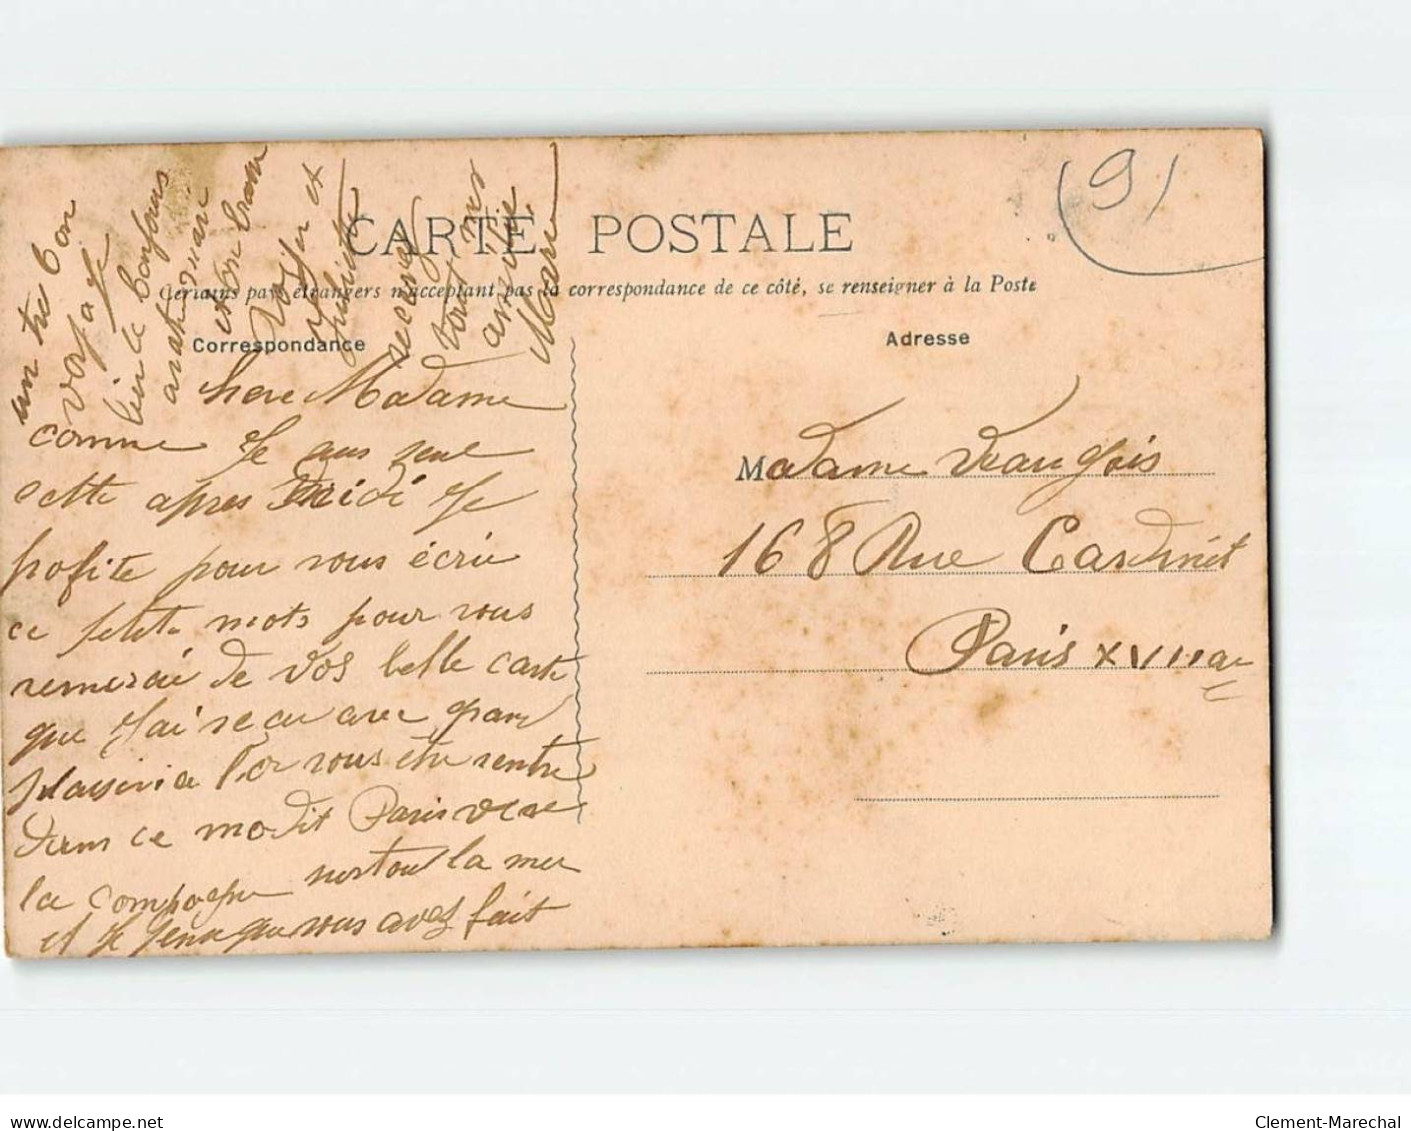 CARTE POSTALE
Certains pays étrangers n'acceptant pas la correspondance de ce côté, se renseigner à la Poste
Correspondance
Adresse
9
chere Madame
comme Je suis seul
cette apres Midi Je
profite pour vous écrie
ce petite mots pour vous
remercie de vos belle carte
que J'ai recu avec grand
plaisir vous etre rentre
dans ce modit Paris vive
la compagne surtou la mer
et Je que vous avez fait
un tre bon
voyage
bien le bonjour
a
et son
et
Juliette
recevez
tout mes
amitie
Marie
Madame
168 Rue Cardinet
Paris XVII ar
delcampe.net
Clement-Marechal